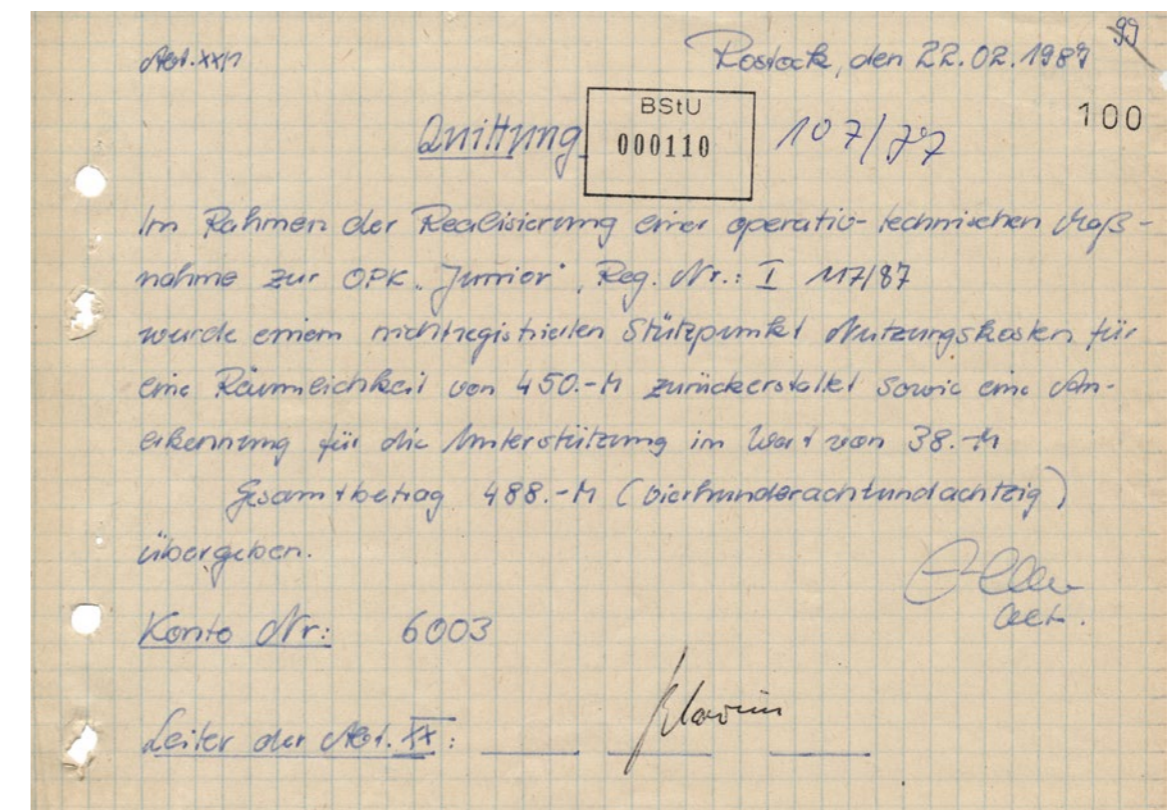 99
Abt. XX/1 Rostock, den 22.02.1989
BStU
000110
100
Quittung 107/77
Im Rahmen der Realisierung einer operativ-technischen Maß-
nahme zur OPK „Junior", Reg. Nr.: I 117/87
wurde einem nichtregistrierten Stützpunkt Nutzungskosten für
eine Räumlichkeit von 450.-M zurückerstattet sowie eine An-
erkennung für die Unterstützung im Wert von 38.-M
Gesamtbetrag 488.-M (vierhunderachtundachtzig)
übergeben.
Konto Nr: 6003
Leiter der Abt. XX: